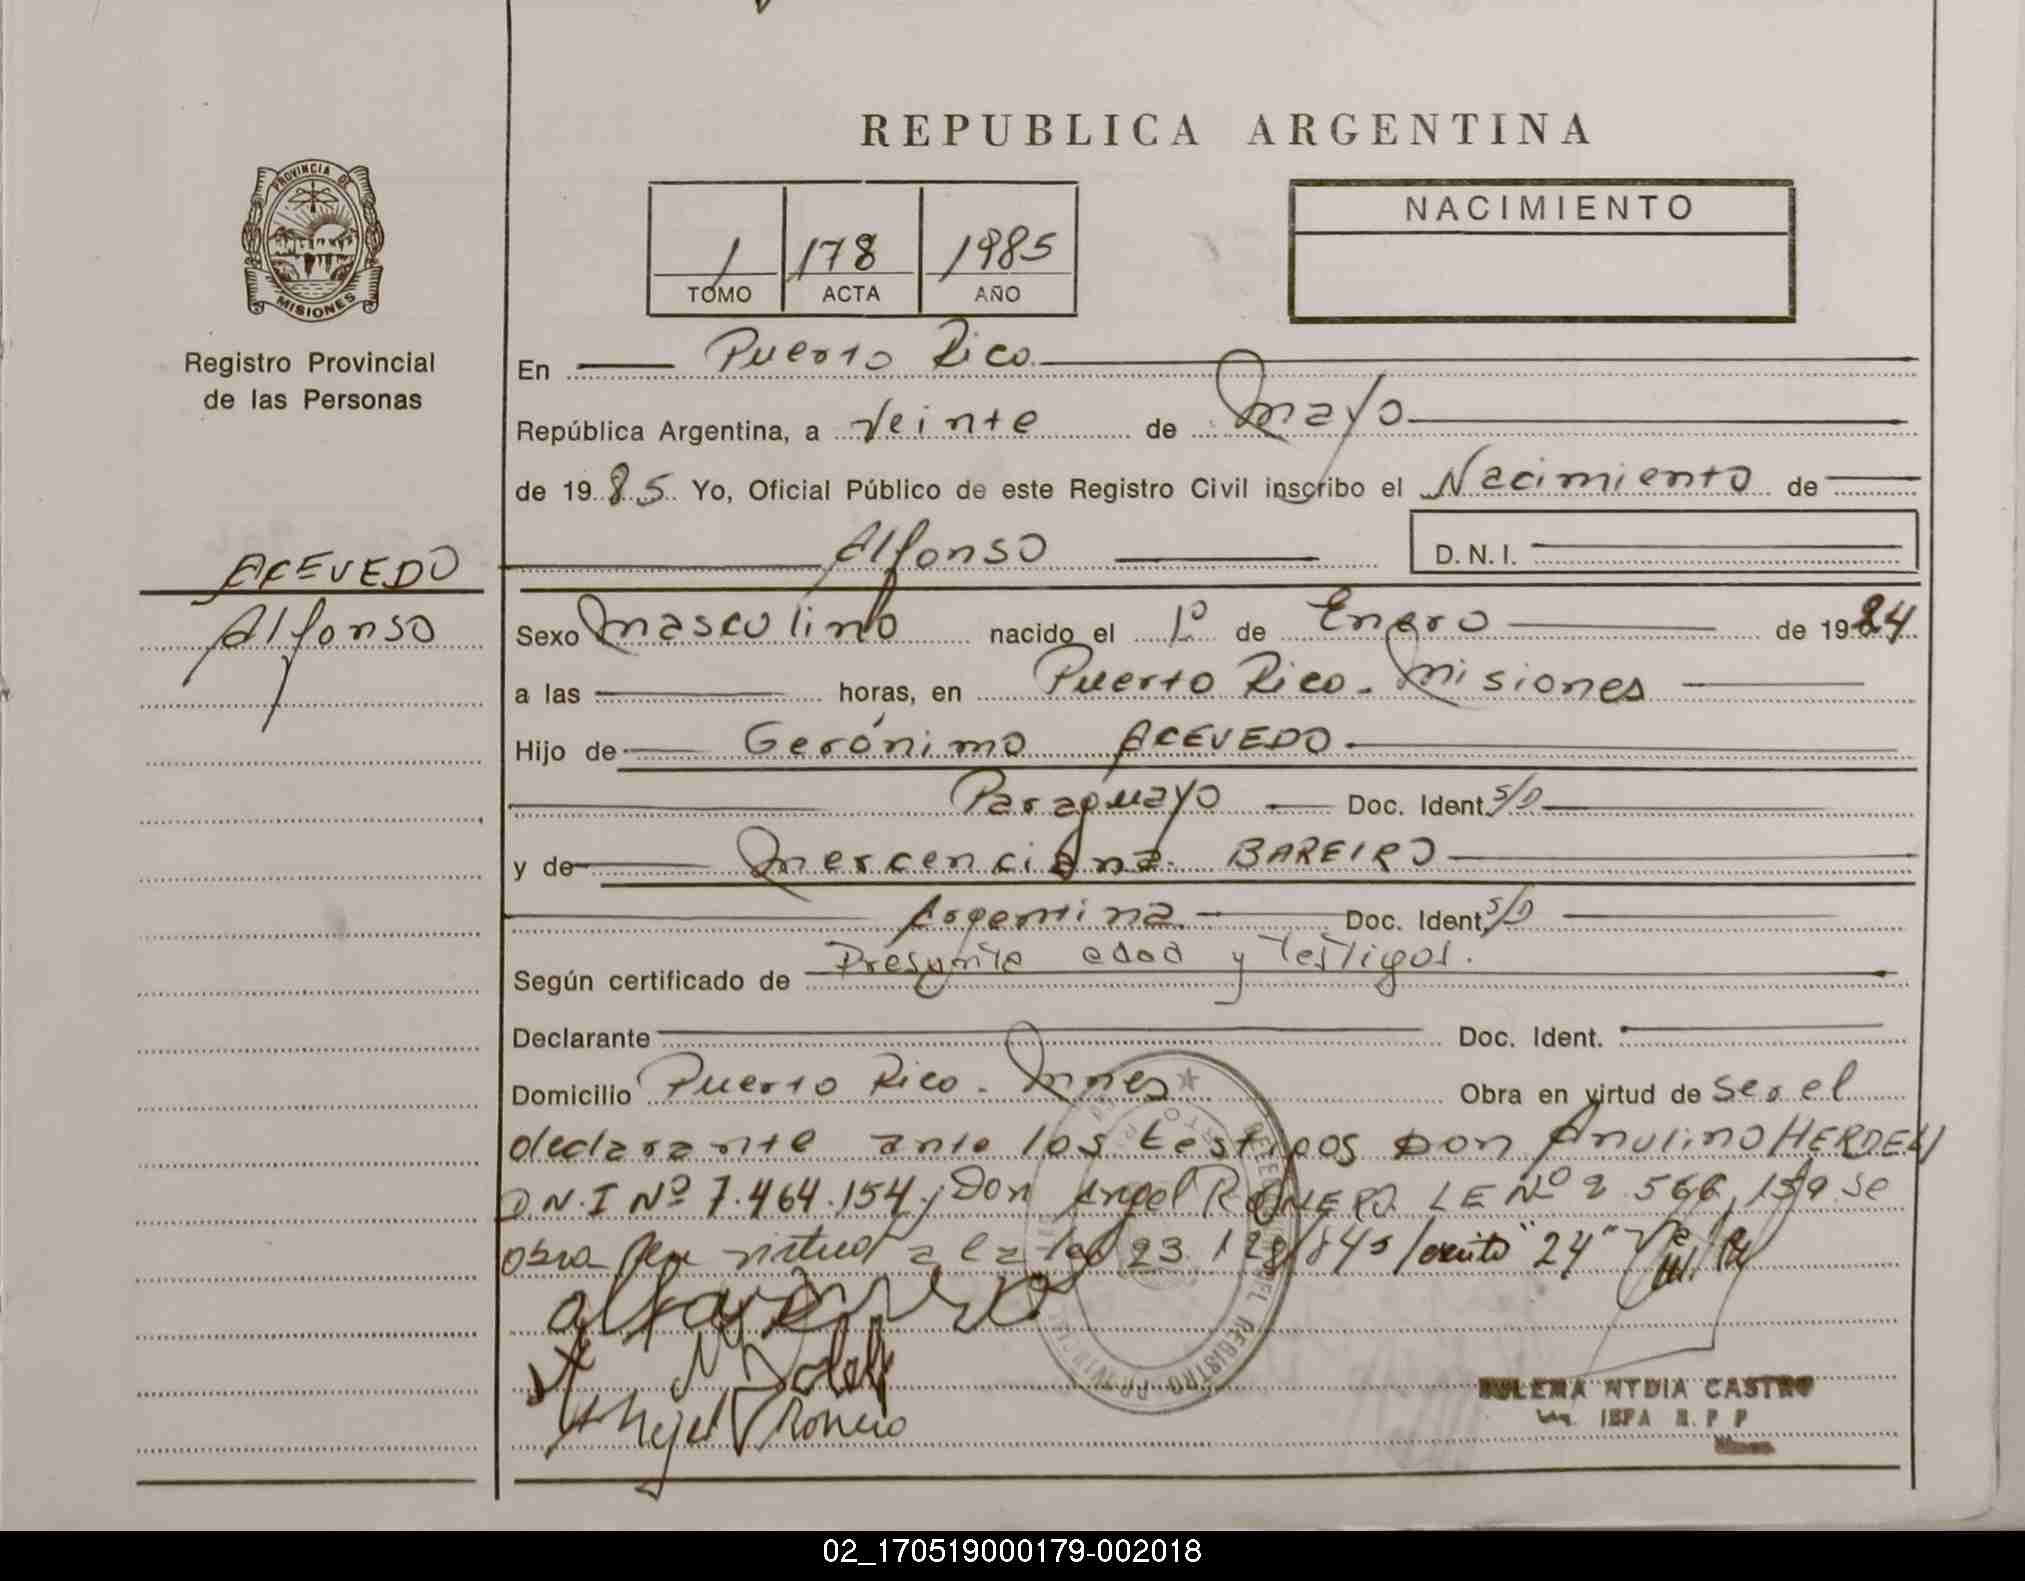 REPUBLICA ARGENTINA
PROVINCIA DE
MISIONES
Registro Provincial
de las Personas
1 178 1985
TOMO ACTA AÑO
NACIMIENTO
En Puerto Rico
República Argentina, a Veinte de Mayo
de 1985. Yo, Oficial Público de este Registro Civil inscribo el Nacimiento de
Alfonso D.N.I.
ACEVEDO
Alfonso
Sexo Masculino nacido el 1º de Enero de 19 24
a las horas, en Puerto Rico. Misiones
Hijo de Gerónimo ACEVEDO
Paraguayo Doc. Ident. S/D
y de Mercenciana BAREIRO
Argentina Doc. Ident. S/D
Según certificado de Presunta edad y Testigos.
Declarante Doc. Ident.
Domicilio Puerto Rico. Mnes Obra en virtud de ser el
declarante ante los testigos Don Anulino
D.N.I Nº 7.464.154 y Don Angel ROMERO. LE Nº 2 566,159 se
obra en virtud a la ley 23.128/84 s/ escrito "24" Vale
Angel Romero
DELEG DEL REGISTRO PROVINCIAL
ZULEMA NYDIA CASTRO
R. P. P
Mnes.
02_170519000179-002018